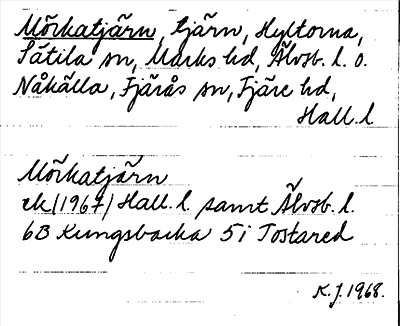 Mörkatjärn, tjärn, Hyltorna,
Sätila sn, Marks hd, Älvsb. l. o.
Nåkälla, Fjärås sn, Fjäre hd,
Hall. l
Mörkatjärn
ek (1967) Hall. l. samt Älvsb. l.
6B Kungsbacka 5i Tostared
K.J. 1968.